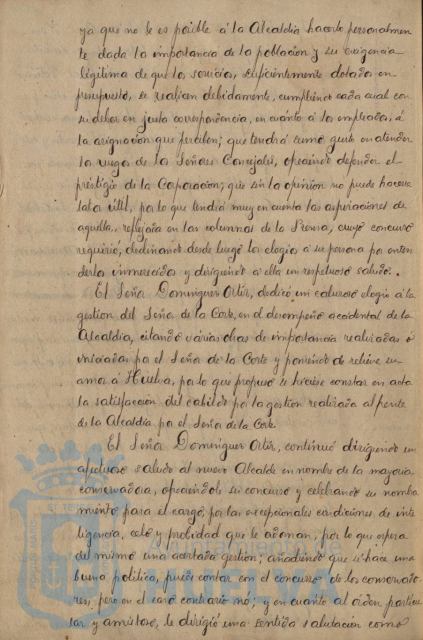 ya que no le es posible á la Alcaldía hacerlo personalmen
te dada la importancia de la población y su exigencia
legítima de que los servicios, suficientemente dotados en
presupuesto, se realicen debidamente, cumpliendo cada cual con
su deber en justa correspondencia, en cuanto á los empleados, á
la asignación que perciben; que tendrá sumo gusto en atender
los ruegos de los Señores Concejales, ofreciendo defender el
prestigio de la Corporación; que sin la opinión no puede hacerse
labor útil, por lo que tendrá muy en cuenta las aspiraciones de
aquella, reflejadas en las columnas de la Prensa, cuyo concurso
requirió, declinando desde luego los elogios á su persona por enten
derlos inmerecidos y dirigiendo á ella un respetuoso saludo.
El Señor Domínguez Ortiz, dedicó un caluroso elogio á la
gestión del Señor de la Corte, en el desempeño accidental de la
Alcaldía, citando varias obras de importancia realizadas ó
iniciadas por el Señor de la Corte y poniendo de relieve su
amor á Huelva, por lo que propuso se hiciese constar en acta
la satisfacción del cabildo por la gestión realizada al frente
de la Alcaldía por el Señor de la Corte.
El Señor Domínguez Ortiz, continuó dirigiendo un
afectuoso saludo al nuevo Alcalde en nombre de la mayoría
conservadora, ofreciéndole su concurso y celebrando su nombra
miento para el cargo, por las excepcionales condiciones, de inte
ligencia, celo y probidad que le adornan, por lo que espera
del mismo una acertada gestión; añadiendo que si hace una
buena política, puede contar con el concurso de los conservado
res, pero en el caso contrario nó; y en cuanto al orden particu
lar y amistoso, le dirigió una sentida salutación como